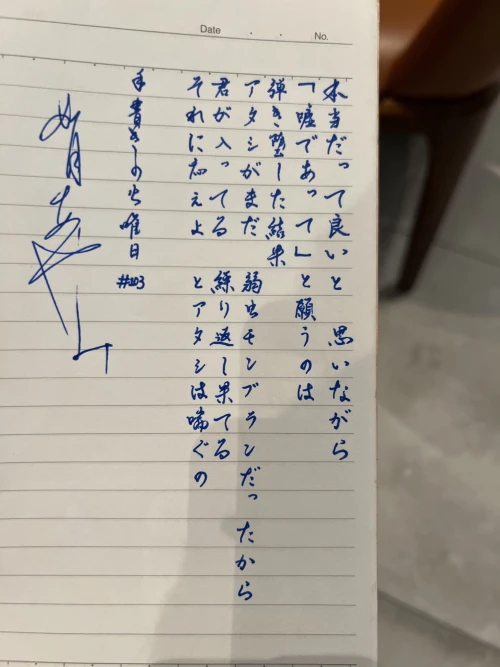 Date . . No.
本当だって良いと 思いながら
「嘘であって」と願うのは
弾き堕した結果
アタシがまだ 弱虫モンブランだったから
君が入ってる 繰り返し果てる
それに応えよ とアタシは喘ぐの
手書きの火曜日 #203
如月